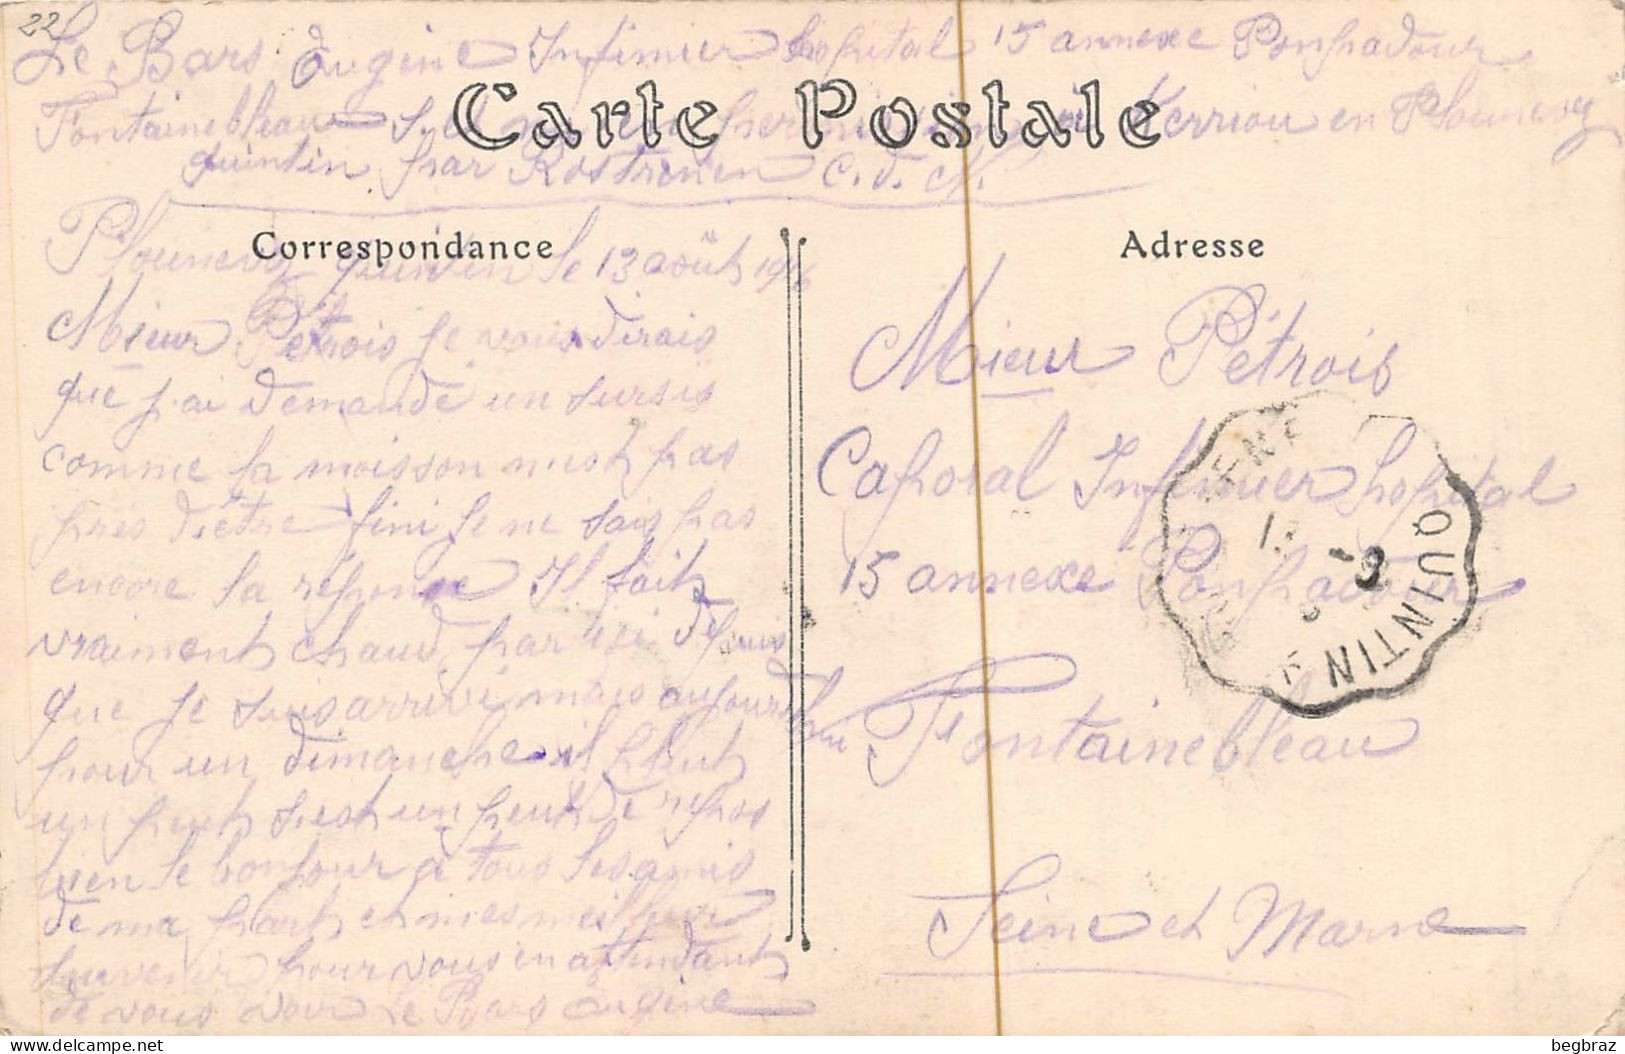 22
Le Bars Eugène Infimier hopital 15 annexe Ponpadour
Fontainebleau en permission à Kerriou en Plounevez
quintin par Rostrenen C. d. N.
Carte Postale
Correspondance
Plounevez quintin le 13 août 1916
Mieur Pétrois je vous dirais
que j'ai demandé un sursis
comme la moisson nest pas
près d'être fini je ne sais pas
encore la réponse Il fait
vraiment chaud par ici depuis
que je suis arrivé mais aujourdhui
pour un dimanche il pleut
un peut sest un peut de repos
bien le bonjour à tous les amis
de ma part et mes meilleur
souvenir pour vous en attendant
de vous voir Le Bars eugène
Adresse
Mieur Pétrois
Caporal Infimier hopital
15 annexe Ponpadour
Fontainebleau
Seine et Marne
QUINTIN
begbraz